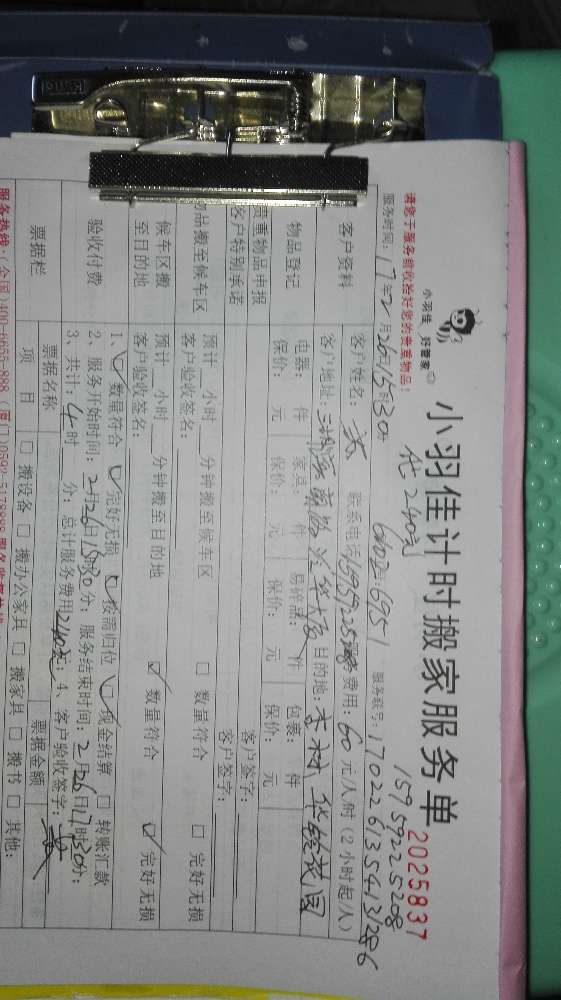 请您于服务前收拾好您的贵重物品!
小羽佳 好管家
小羽佳计时搬家服务单
2025837
15959225208
优240元
服务时间: 17年2月26日15时30分
服务账号: 1702261354131286
客户资料
客户姓名:
联系电话
费用: 60元/人/时 (2小时起/人)
客户地址:
目的地:
物品登记
电器: 件 家具: 件 易碎品: 件 包裹: 件
保价: 元 保价: 元 保价: 元 保价: 元
贵重物品申报
客户签字:
客户特别承诺
客户签字:
物品搬至候车区
预计 小时 分钟搬至候车区 □ 数量符合 □ 完好无损
客户验收签名:
候车区搬至目的地
预计 小时 分钟搬至目的地 ☑ 数量符合 ☑ 完好无损
客户验收签名:
验收付费
1、☑ 数量符合 ☑ 完好无损 ☑ 按需归位 ☑ 现金结算 □ 转账汇款
2、服务开始时间: 2月26日15时30分; 服务结束时间: 2月26日17时30分;
3、共计: 4时 分; 总计服务费用240元; 4、客户验收签字:
票据栏
票据名称
票据金额
项目 □ 搬设备 □ 搬办公家具 □ 搬家具 □ 搬书 □ 其他:
服务热线: (全国)400-6655-888 (厦门)0592-5178888